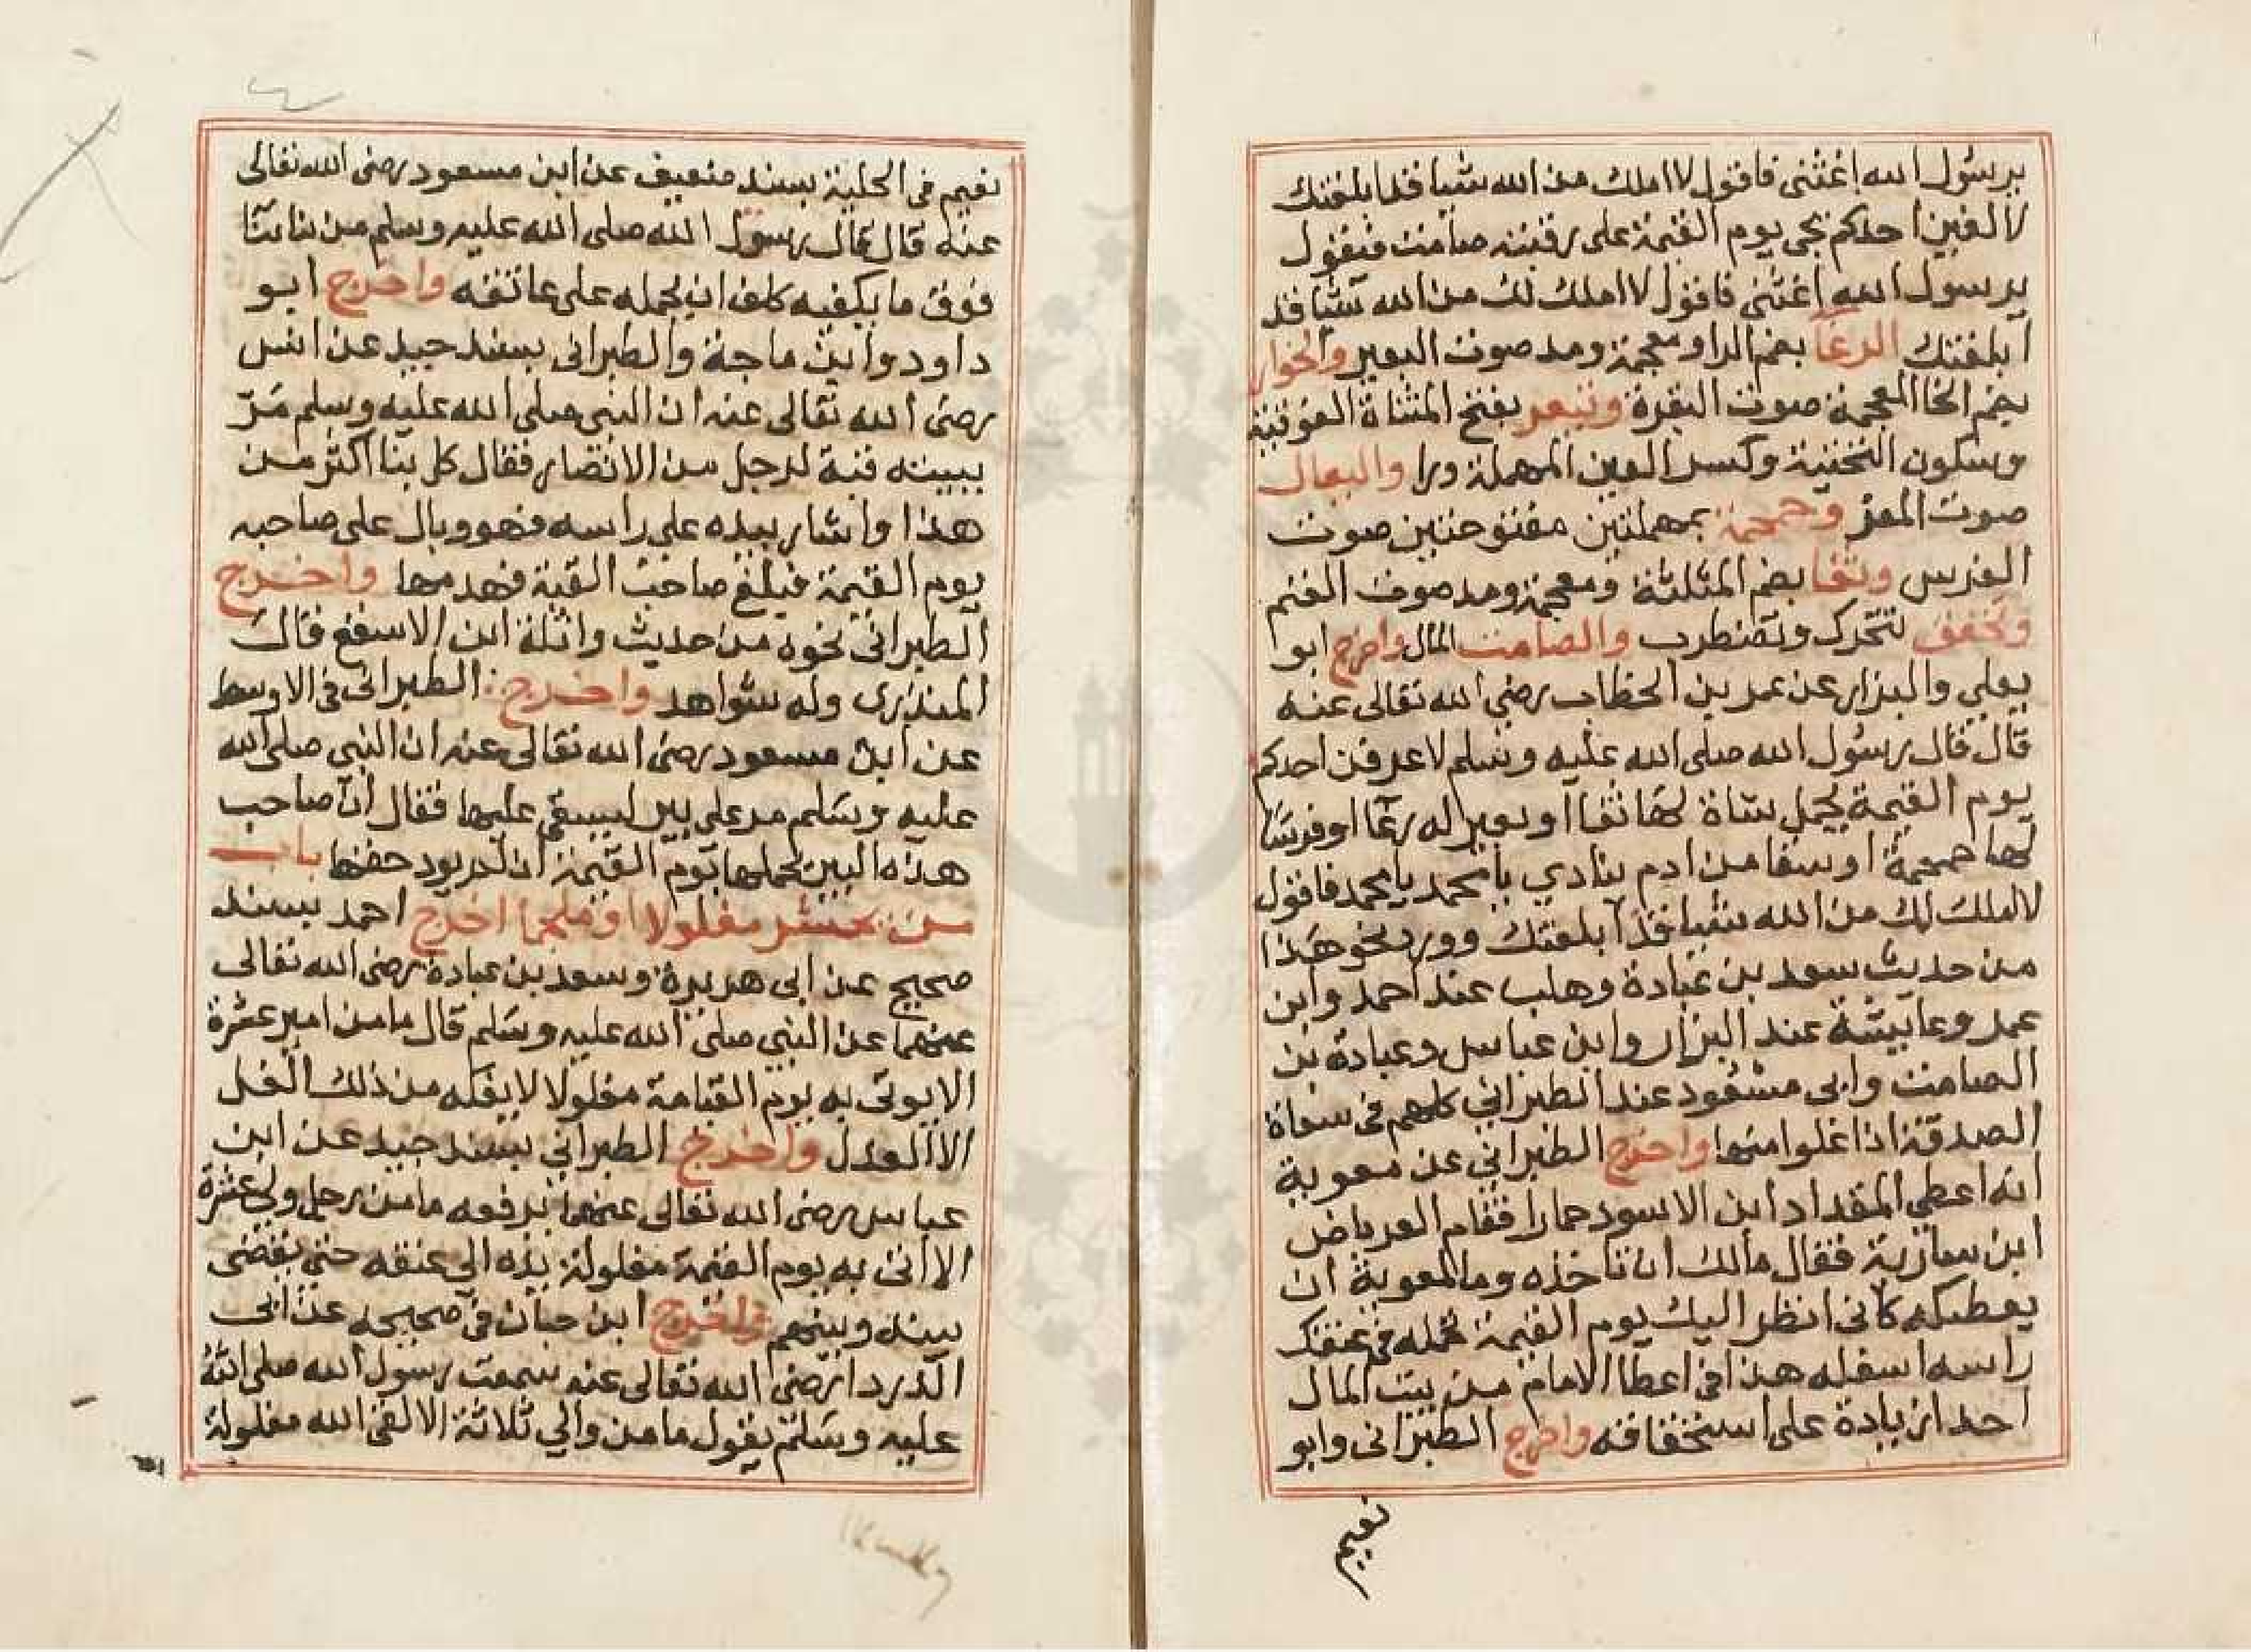 يرسول الله اغثني فاقول لا املك من الله شيا قد ابلغتك
لا الفين احدكم يجى يوم القيمة على رقبته صامت فيقول
يرسول الله اغثني فاقول لا املك لك من الله شيا قد
ابلغتك الرغا بضم الرا ومعجمة ومد صوت البعير والخوار
بضم الخا المعجمة صوت البقرة وتيعر بفتح المثناة الفوقية
وسكون التحتية وكسر العين المهملة ورا والبعال
صوت المعز وحمحمة بمهملتين مفتوحتين صوت
الفرس وثغا بضم المثلثة ومعجمة ومد صوت الغنم
وتخفق تتحرك وتضطرب والصامت المال واخرج ابوا
يعلي والبزار عن عمر بن الخطاب رضي الله تعالى عنه
قال قال رسول الله صلى الله عليه وسلم لاعرفن احدكم
يوم القيمة يحمل شاة لها ثغا او بعير له رغا او فرسا
لها حمحمة او سقا من ادم ينادي يا محمد يا محمد فاقول
لا املك لك من الله شيا قد ابلغتك وورد نحو هذا
من حديث سعد بن عبادة وهلب عند احمد وابن
عمر وعايشة عند البزار وابن عباس وعبادة بن
الصامت وابي مسعود عند الطبراني كلهم في سعاة
الصدقة اذا غلوا منها واخرج الطبراني عن معوية
انه اعطى المقداد ابن الاسود حمارا فقام العرباض
ابن سارية فقال مالك ان تاخذه وما لمعوية ان
يعطيكه كاني انظر اليك يوم القيمة تحمله في عنقك
راسه اسفله هذا في اعطا الامام من بيت المال
احدا زيادة على استحقاقه واخرج الطبراني وابو
نعيم
نعيم في الحلية بسند ضعيف عن ابن مسعود رضي الله تعالى
عنه قال قال رسول الله صلى الله عليه وسلم من بنا بنآا
فوق ما يكفيه كلف ان يحمله على عاتقه واخرج ابو
داود وابن ماجة والطبراني بسند جيد عن انس
رضي الله تعالى عنه ان النبي صلى الله عليه وسلم مر
ببينه قبة لرجل من الانصار فقال كل بنا اكثر من
هذا واشار بيده على راسه فهو وبال على صاحبه
يوم القيمة فبلغ صاحب القبة فهدمها واخرج
الطبراني نحوه من حديث واثلة ابن الاسقع قال
المنذرى وله شواهد واخرج الطبراني في الاوسط
عن ابن مسعود رضي الله تعالى عنه ان النبي صلى الله
عليه وسلم مر على بير ليسقي عليها فقال ان صاحب
هذه البير يحملها يوم القيمة ان لم يود حقها باب
من يحشر مغلولا او ملجما اخرج احمد بسند
صحيح عن ابى هريرة وسعد بن عبادة رضي الله تعالى
عنهما عن النبي صلى الله عليه وسلم قال ما من امير عشرة
الا يوتى به يوم القيامة مغلولا لا يفكه من ذلك الغل
الا العدل واخرج الطبراني بسند جيد عن ابن
عباس رضي الله تعالى عنهما يرفعه ما من رجل ولي عشرة
الا اتى به يوم القيمة مغلولة يده الى عنقه حتى يقضى
بينه وبينهم واخرج ابن حبان في صحيحه عن ابى
الدردا رضي الله تعالى عنه سمعت رسول الله صلى الله
عليه وسلم يقول ما من والي ثلاثة الا لقى الله مغلولة